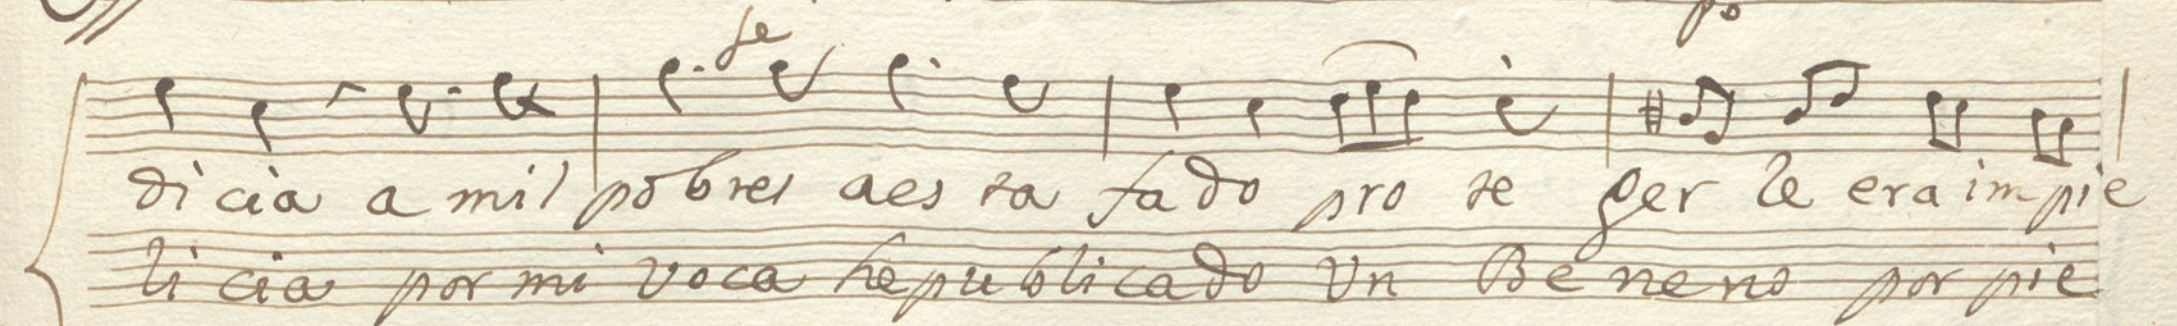 po
fe
di cia a mil pobres aes ta fa do pro te ger le era impie
li cia por mi voca he publicado Un Beneno por pie